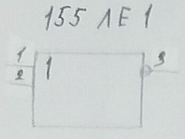 155 ЛЕ 1
1 1 3
2